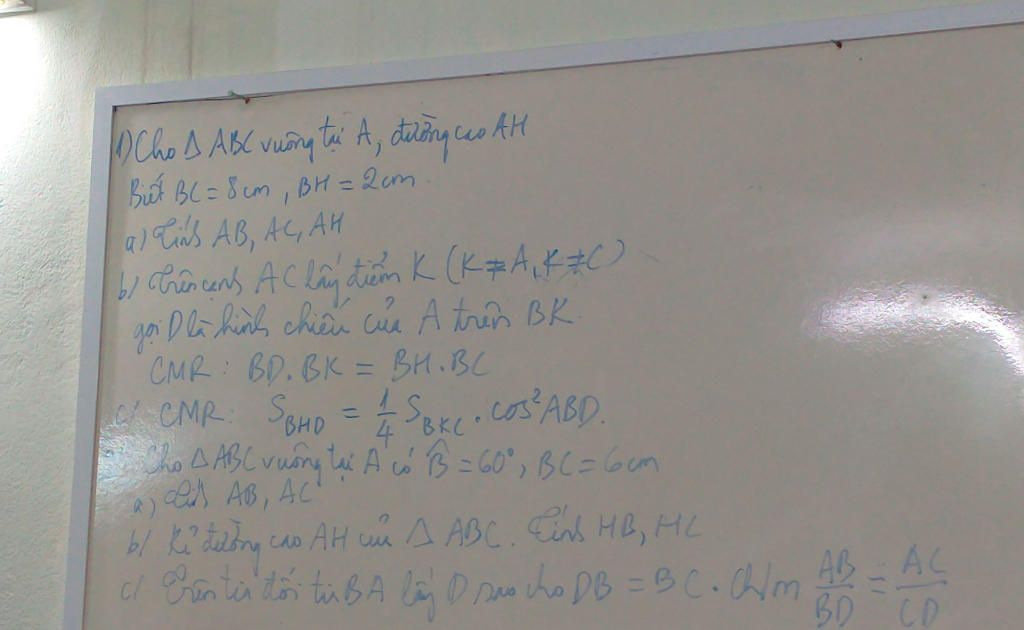 1) Cho Δ ABC vuông tại A, đường cao AH
Biết BC = 8cm, BH = 2cm.
a) Tính AB, AC, AH
b/ Trên cạnh AC lấy điểm K (K ≠ A, K ≠ C)
gọi D là hình chiếu của A trên BK.
CMR: BD.BK = BH.BC
c/ CMR: S_BHD = 1/4 S_BKC . cos²ABD.
Cho Δ ABC vuông tại A có B̂ = 60°, BC = 6cm
a) Tính AB, AC
b/ Kẻ đường cao AH của Δ ABC. Tính HB, HC
c/ Trên tia đối tia BA lấy D sao cho DB = BC. Ch/m AB/BD = AC/CD